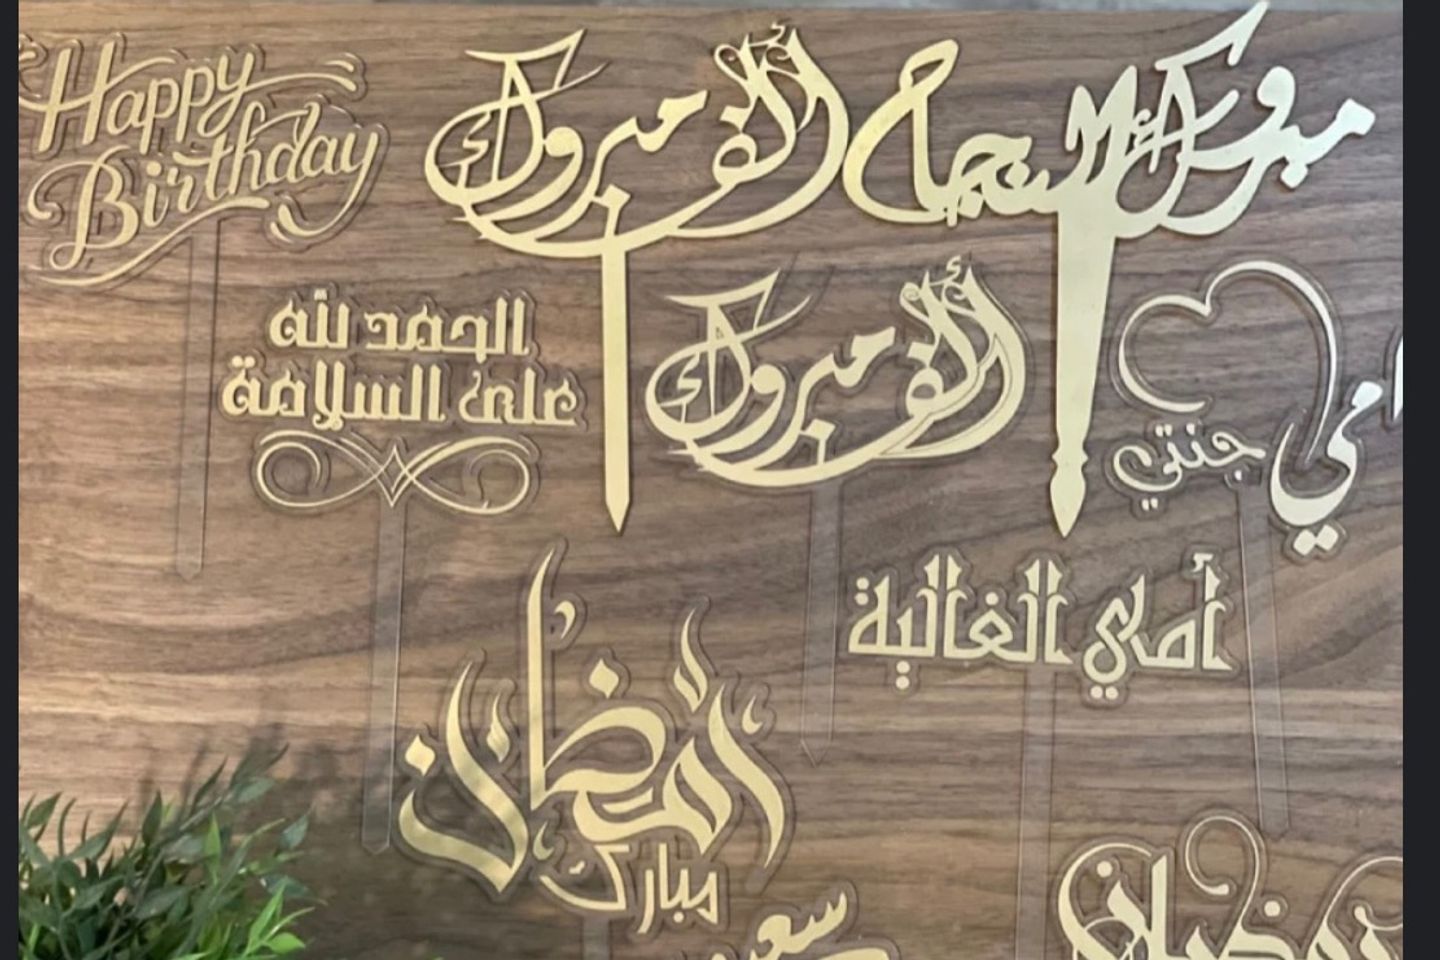 Happy
Birthday
ألف مبروك
مبروك النجاح
الحمد لله
على السلامة
ألف مبروك
أمي
جنتي
أمي الغالية
رمضان
مبارك
رمضان